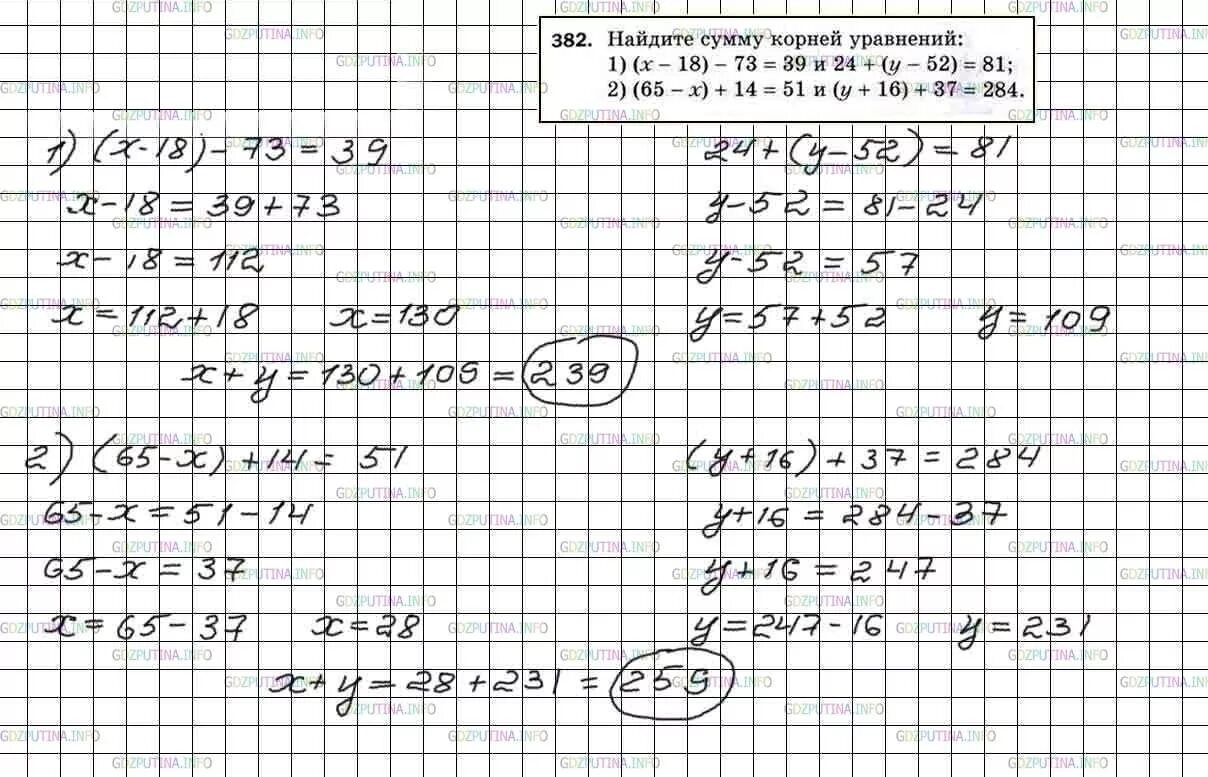 382. Найдите сумму корней уравнений:
1) (x – 18) – 73 = 39 и 24 + (y – 52) = 81;
2) (65 – x) + 14 = 51 и (y + 16) + 37 = 284.
1) (x-18)-73=39
24+(y-52)=81
x-18=39+73
y-52=81-24
x-18=112
y-52=57
x=112+18 x=130
y=57+52 y=109
x+y=130+109=239
2) (65-x)+14=51
(y+16)+37=284
65-x=51-14
y+16=284-37
65-x=37
y+16=247
x=65-37 x=28
y=247-16 y=231
x+y=28+231=259
GDZPUTINA.INFO